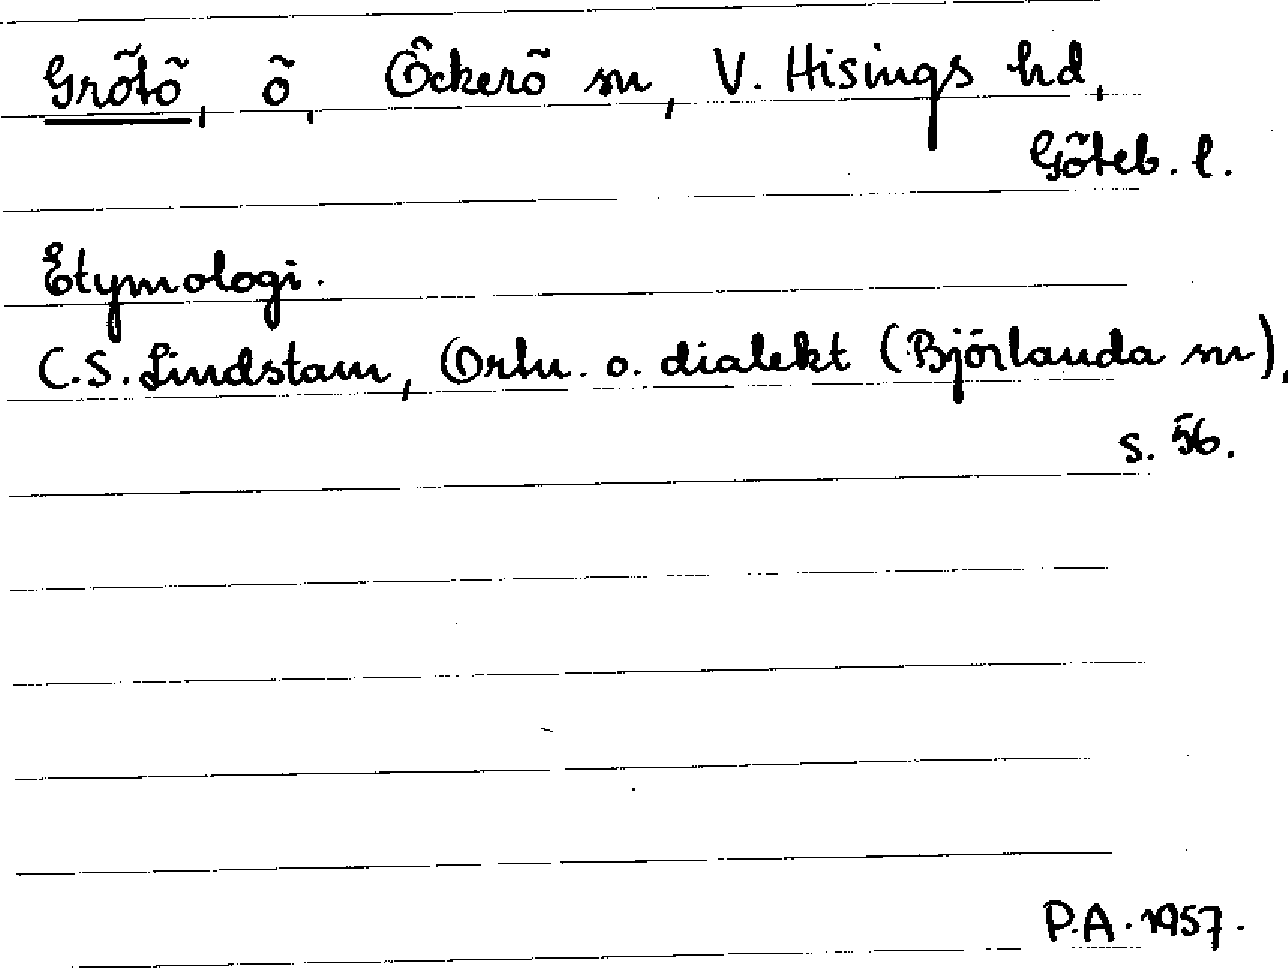 Grötö, ö, Öckerö sn, V. Hisings hd,
Göteb. l.
Etymologi.
C.S. Lindstam, Ortn. o. dialekt (Björlanda sn),
s. 56.
P.A. 1957.